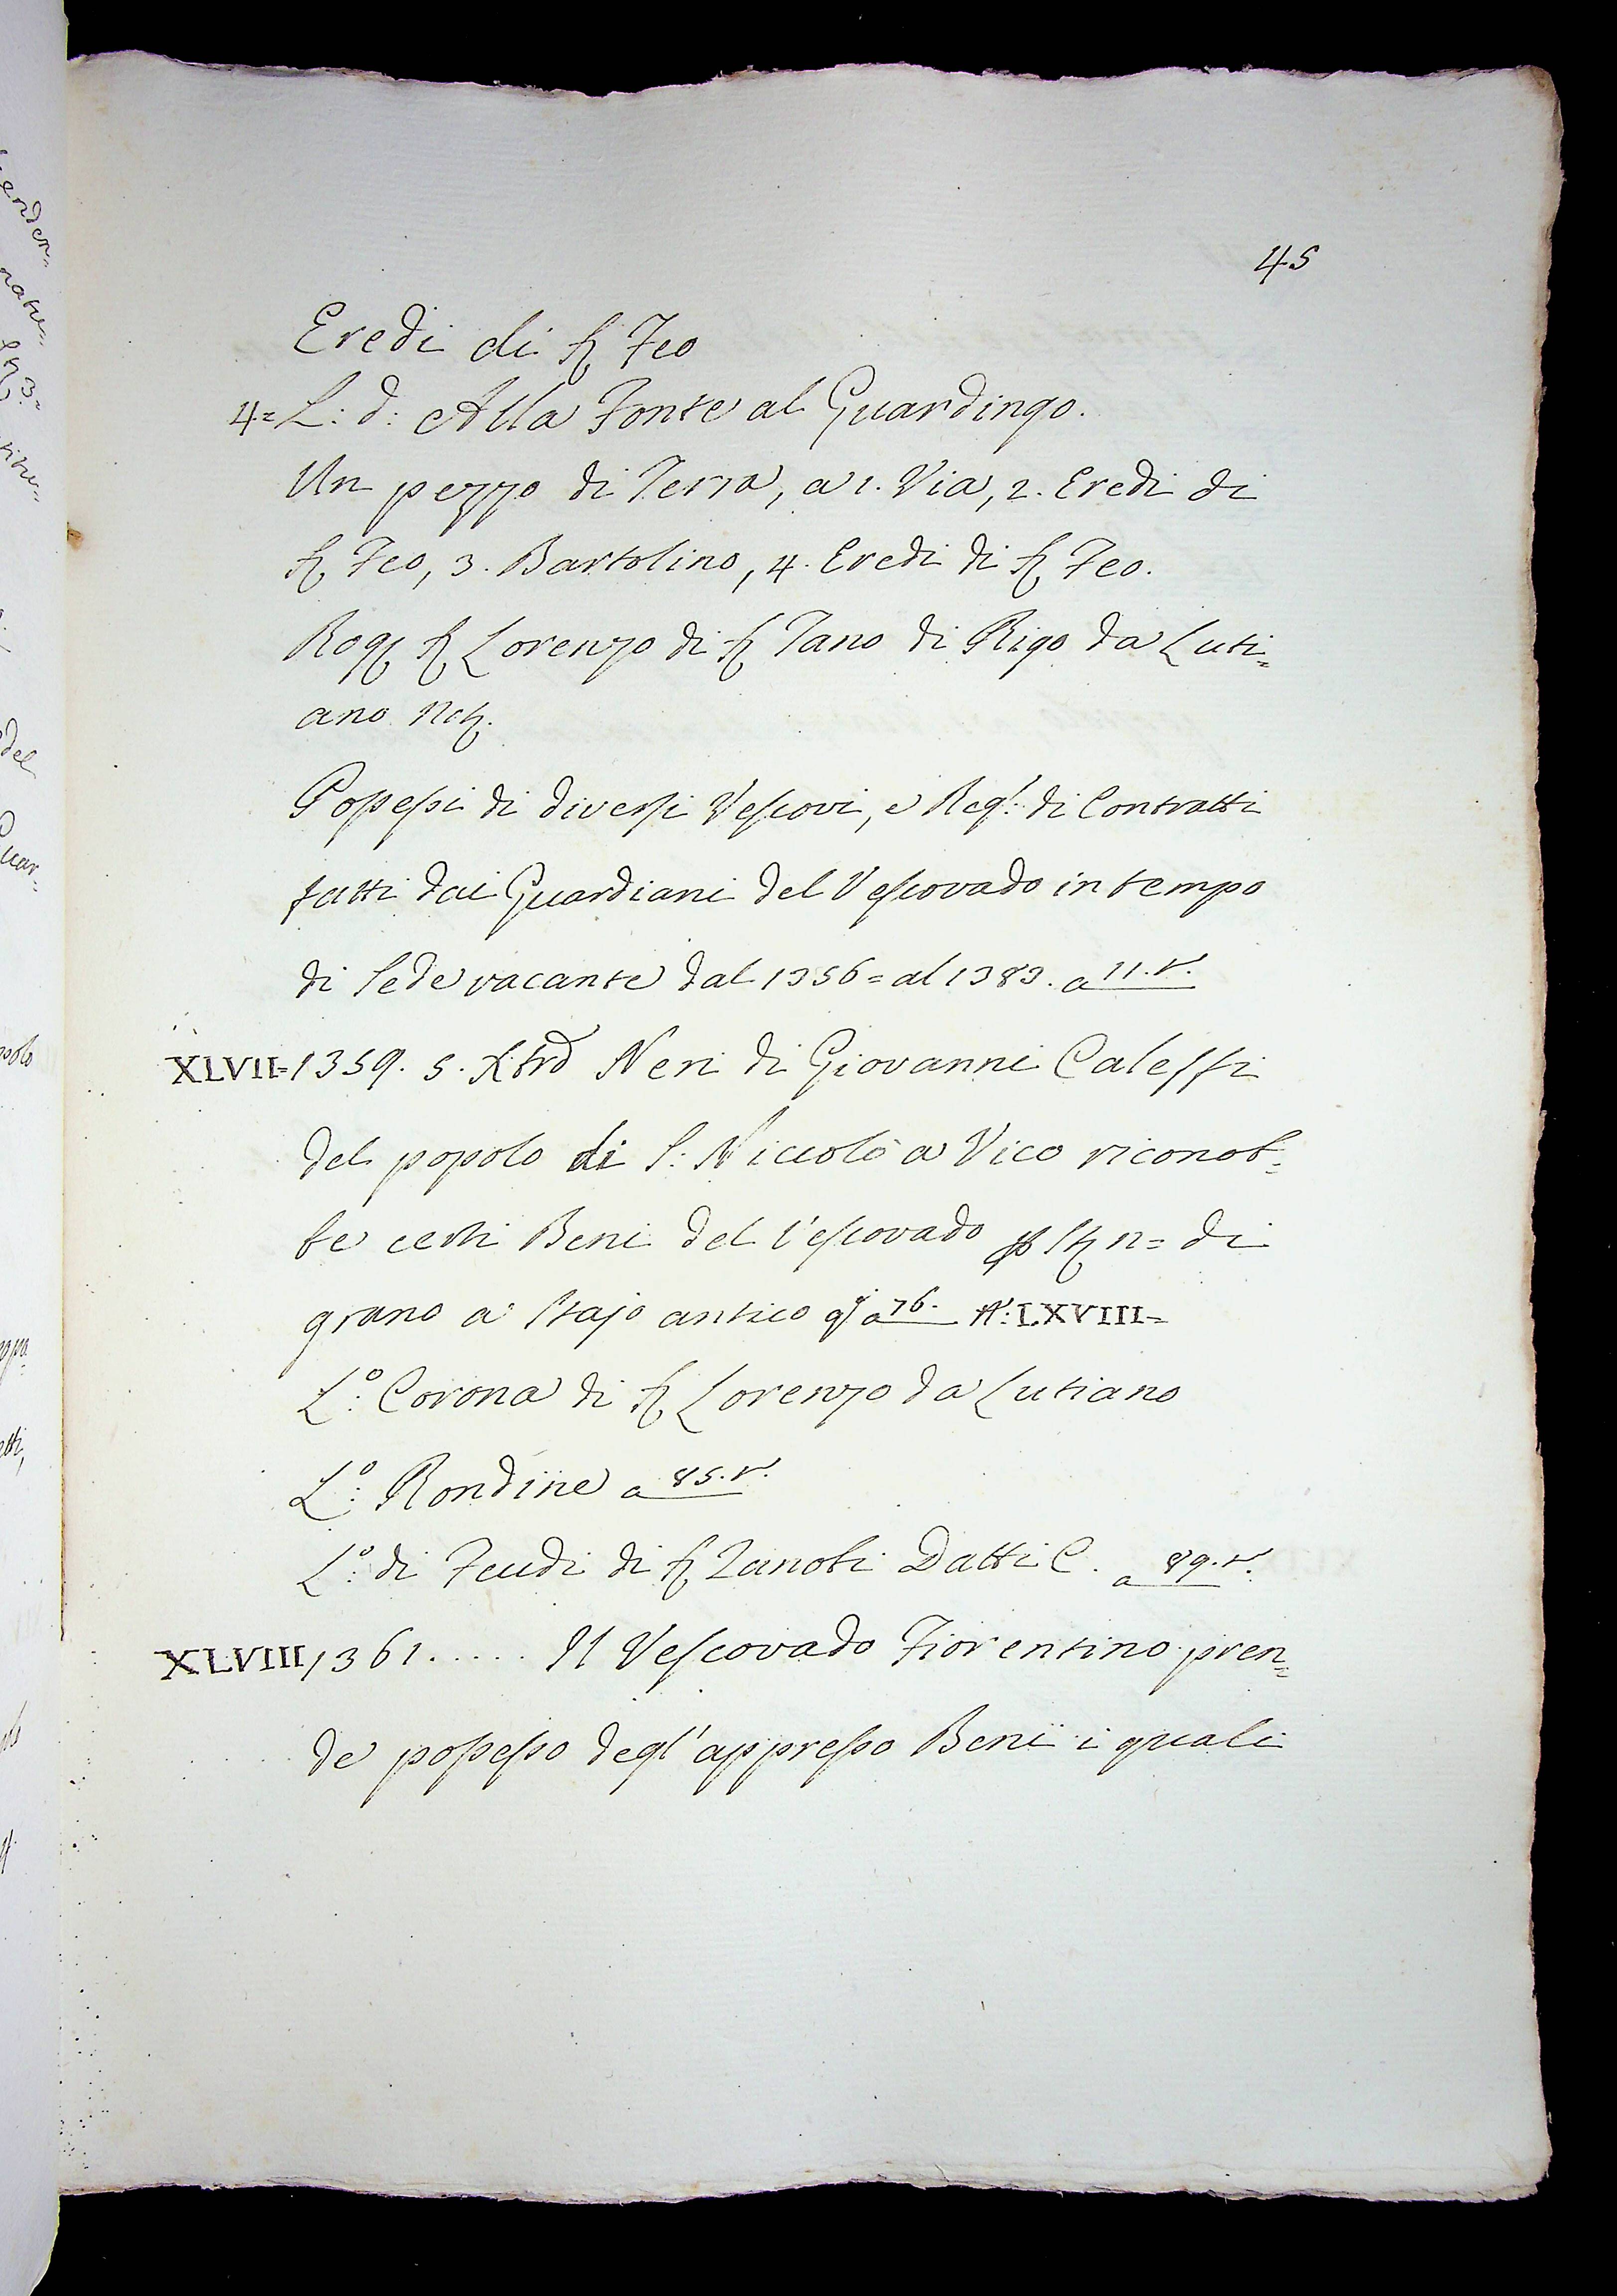 45
Eredi di ſ Feo
4= L: d: Alla Fonte al Guardingo.
Un pezzo di Terra, a 1. Via, 2. Eredi di
ſ Feo, 3. Bartolino, 4. Eredi di ſ Feo.
Rog ſ Lorenzo di ſ Tano di Rigo da Luti=
ano Not.
Poſſeſſi di diverſi Veſcovi, e Regſ: di Contratti
fatti dai Guardiani del Veſcovado in tempo
di Sede vacante dal 1356= al 1383. a 11. v.
XLVII= 1359. 5. Xbrē Neri di Giovanni Caleffi
del popolo di S: Niccolò a Vico riconob=
be certi Beni del Veſcovado p St 12= di
grano a Stajo antico qº a 76. Nº: LXVIII=
Lº: Corona di ſ Lorenzo da Lutiano
Lº: Rondine a 85. v.
Lº: di Feudi di ſ Zanobi Datti C. a 89. v.
XLVIII 1361..... Il Veſcovado Fiorentino pren=
de poſſeſſo degl'appreſſo Beni i quali